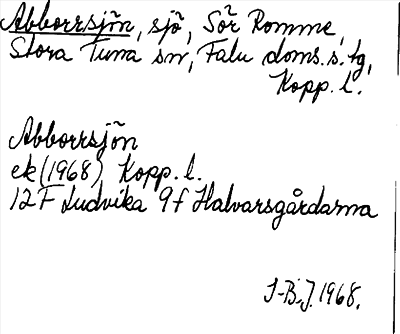 Abborrsjön, sjö, Sör Romme,
Stora Tuna sn, Falu doms.s. tg,
Kopp. l.
Abborrsjön
ek (1968) Kopp. l.
12 F Ludvika 9f Halvarsgårdarna
I-B.J. 1968.